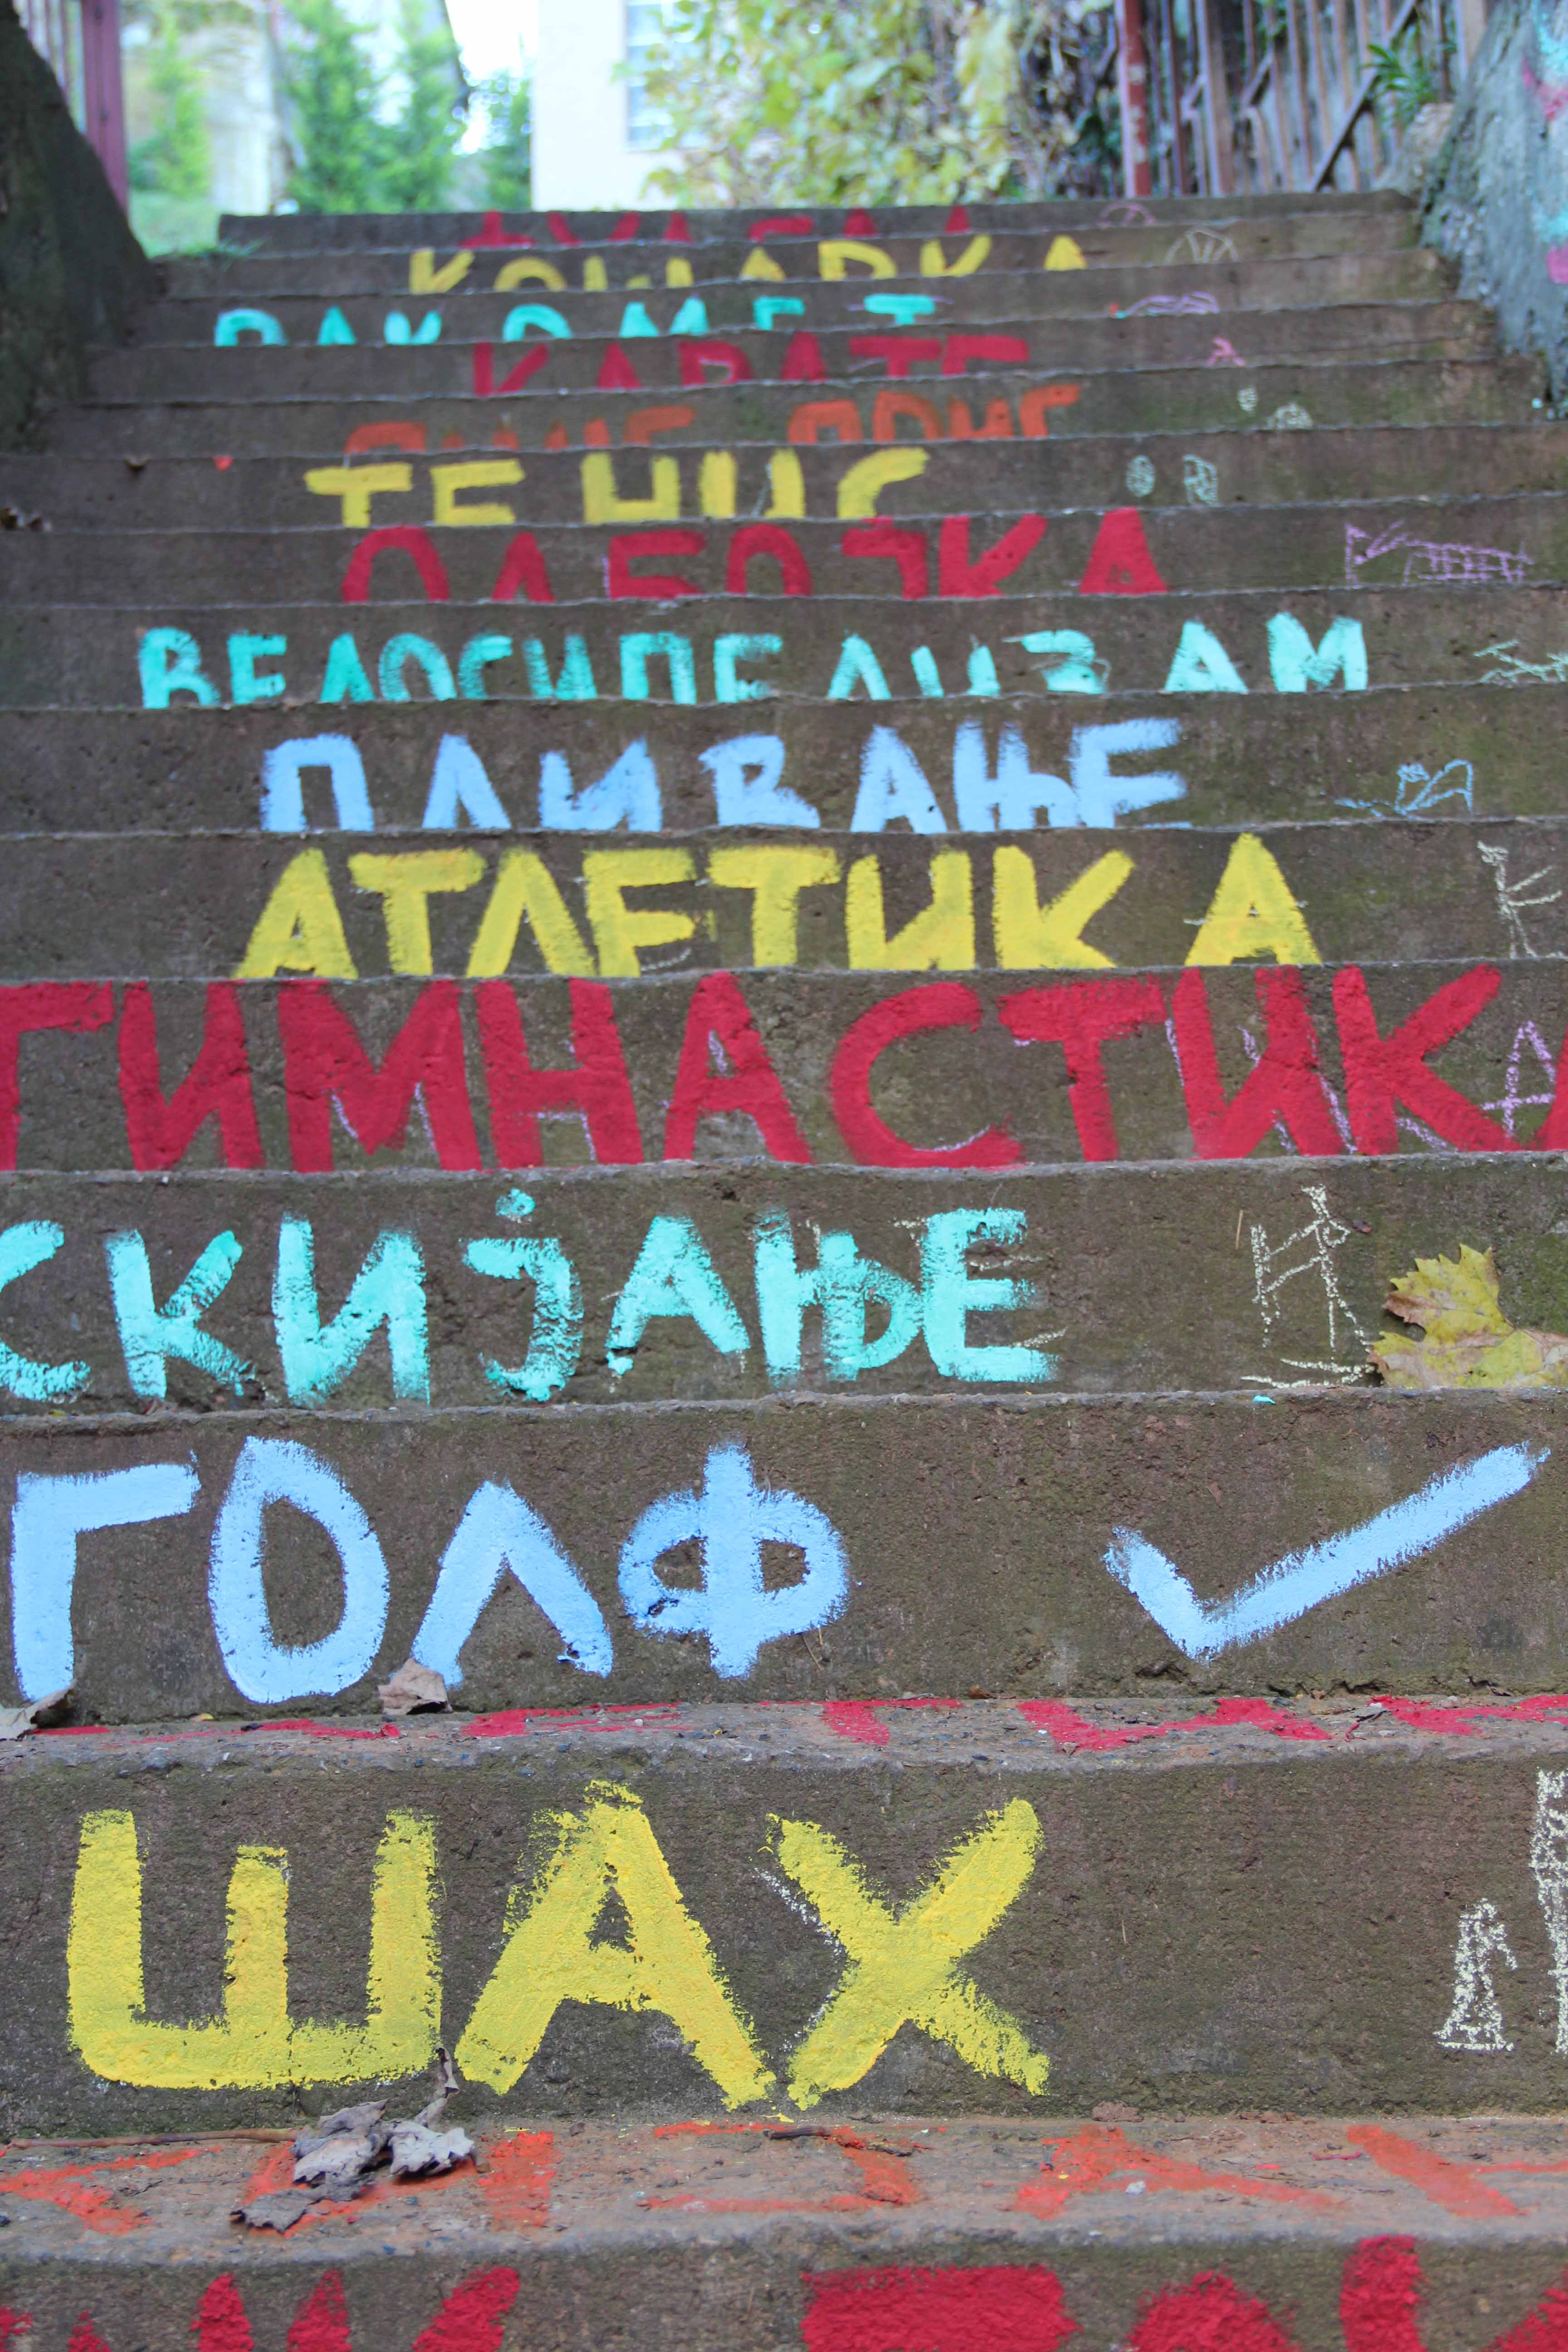 ФУДБАЛ
КОШАРКА
РАКОМЕТ
КАРАТЕ
ТЕНИС
ОДБОЈКА
ВЕЛОСИПЕДИЗАМ
ПЛИВАЊЕ
АТЛЕТИКА
ГИМНАСТИКА
СКИЈАЊЕ
ГОЛФ
ШАХ